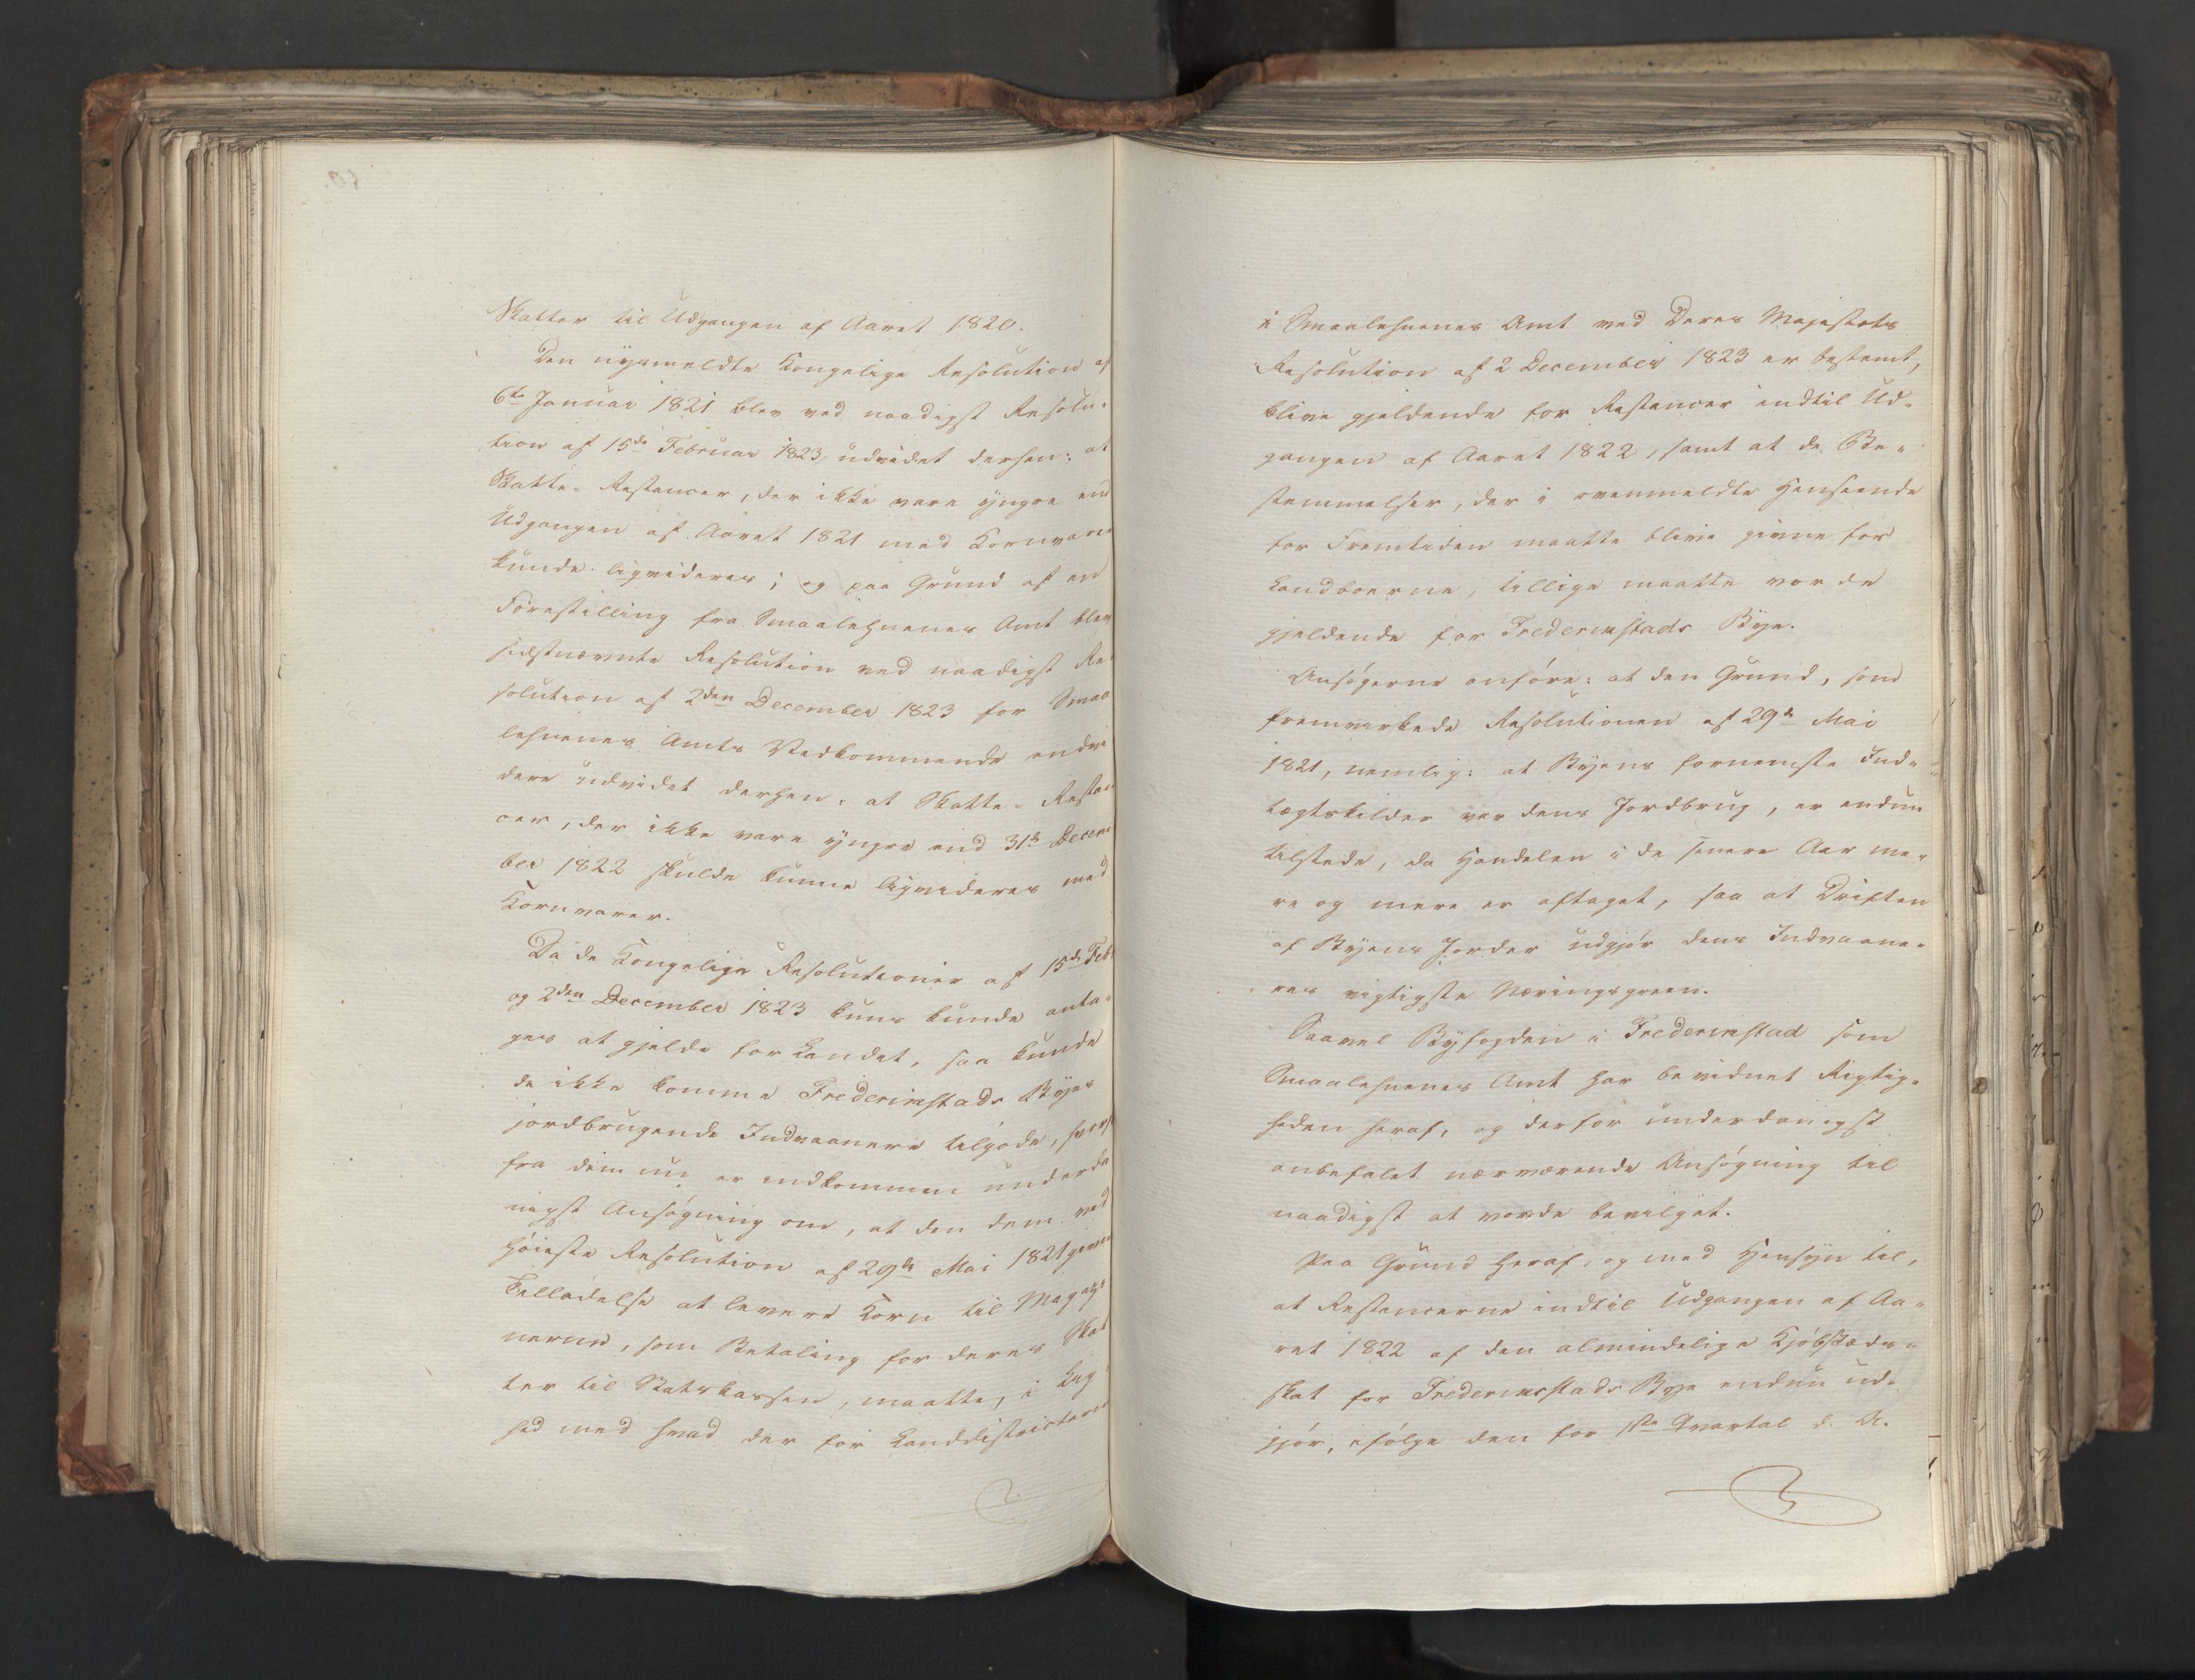 Skatter til Udgangen af Aaret 1820.
Den nysmeldte Kongelige Resolution af
6te Januar 1821 blev ved naadigst Resolu-
tion af 15de Februar 1823 udvidet derhen: at
Skatte-Restancer, der ikke vare yngre end
Udgangen af Aaret 1821 med Kornvarer
kunde liqvideres; og paa Grund af en
Forestilling fra Smaalehnenes Amt blev
sidstnævnte Resolution ved naadigst Re-
solution af 2den December 1823 for Smaa
lehnenes Amts Vedkommende endvi
dere udvidet derhen: at Skatte-Restan
cer, der ikke vare yngre end 31te Decem
ber 1822 skulde kunne liqvideres med
Kornvarer.
Da de Kongelige Resolutioner af 15de Feb
og 2den December 1823 kuns kunde anta-
ges at gjelde for Landet, saa kunde
de ikke komme Fredericstads Byes
jordbrugende Indvaanere tilgode, hvorf
fra dem nu er indkommen underda
nigst Ansøgning om, at den dem ved
høieste Resolution af 29de Mai 1821 given
Tilladelse at levere Korn til Magazi
nerne, som Betaling for deres Skat
ter til Statskassen, maatte, i Lig
hed med hvad der for Landdistricterne
i Smaalehnenes Amt ved Deres Majestæts
Resolution af 2 December 1823 er bestemt,
blive gjeldende for Restancer indtil Ud-
gangen af Aaret 1822, samt at de Be-
stemmelser, der i ovenmeldte Henseende
for Fremtiden maatte blive givne for
Landboerne, tillige maatte vorde
gjeldende for Fredericstads Bye.
Ansøgerne anføre: at den Grund, som
fremvirkede Resolutionen af 29de Mai
1821, nemlig: at Byens fornemste Ind-
tægtskilder var dens Jordbrug, er endnu
tilstede, da Handelen i de senere Aar me-
re og mere er aftaget, saa at Driften
af Byens Jorder udgjør dens Indvaane-
res vigtigste Næringsgreen.
Saavel Byfogden i Fredericstad som
Smaalehnenes Amt har bevidnet Rigtig-
heden heraf, og derfor underdanigst
anbefalet nærværende Ansøgning til
naadigst at vorde bevilget.
Paa Grund heraf, og med Hensyn til,
at Restancerne indtil Udgangen af Aa-
ret 1822 af den almindelige Kjøbstæds-
skat for Fredericsstads Bye endnu ud-
gjør, ifølge den for 1ste Qvartal d. A.